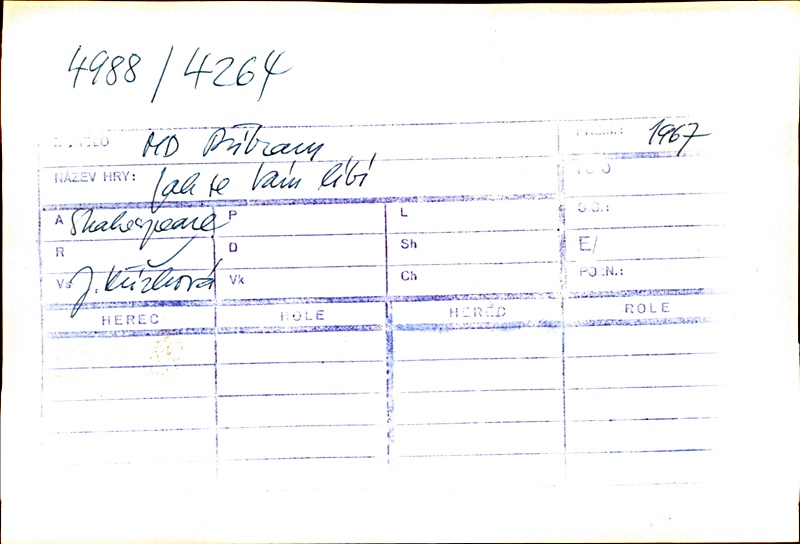 4988/4264
DIVADLO MD Příbram PREM.: 1967
NÁZEV HRY: Jak se Vám líbí
A Shakespeare P L S.O.:
R D Sh E/
Vs J. Křížková Vk Ch POZN.:
HEREC ROLE HEREC ROLE